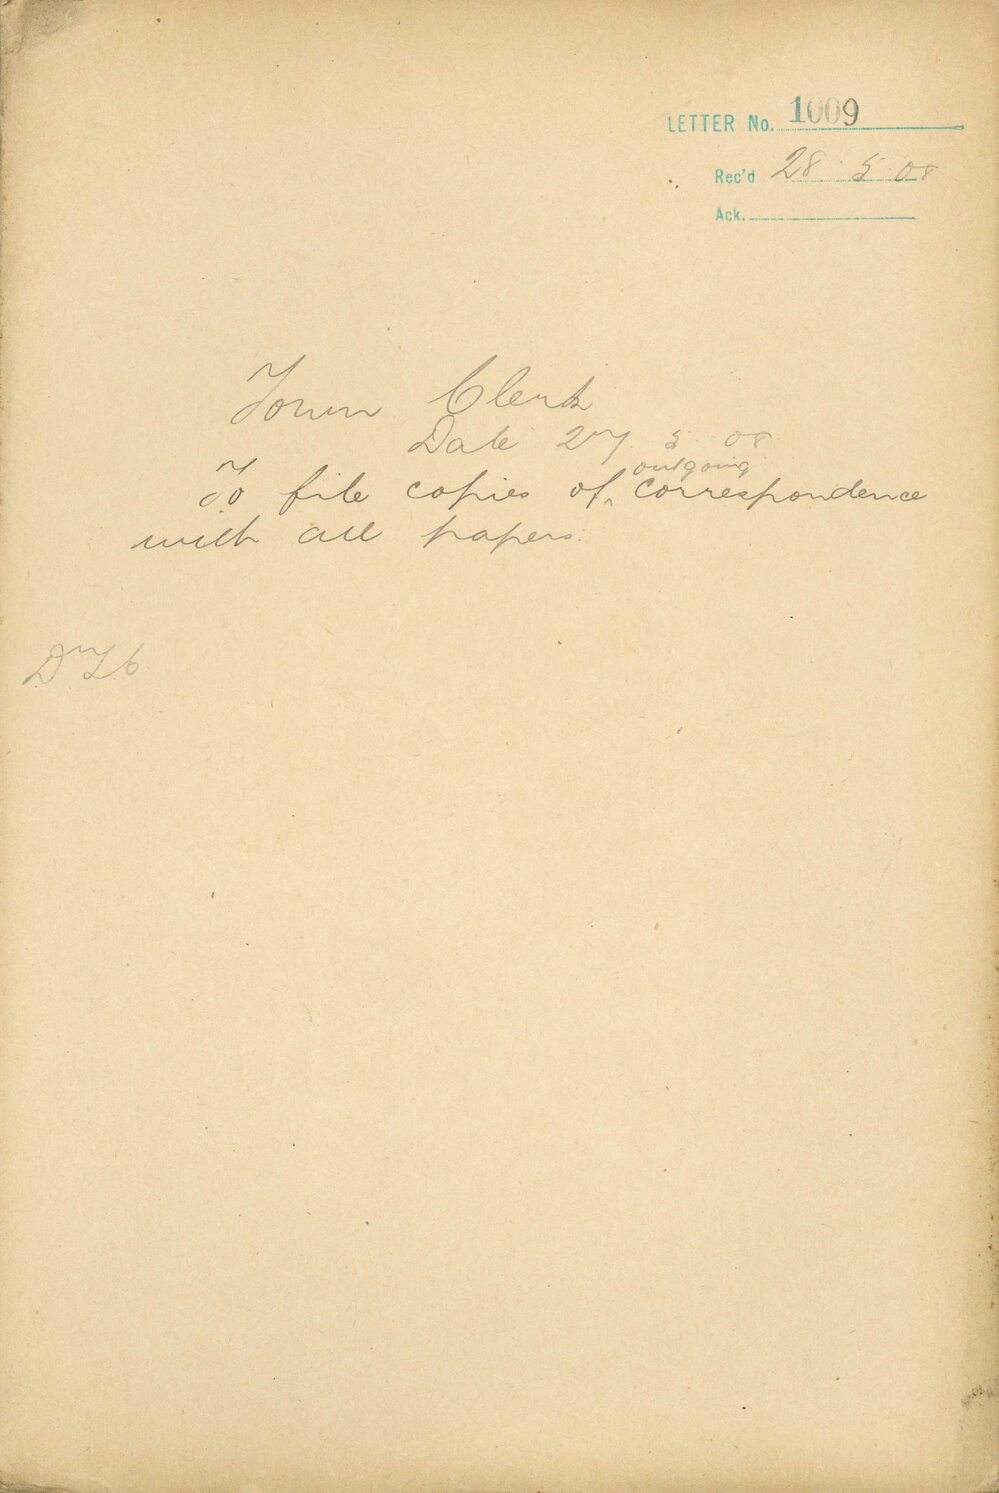 LETTER No. 1009
Rec'd 28. 5. 08
Ack.
Town Clerk
Date 27. 5. 08
outgoing
To file copies of ‸ correspondence
with all papers.